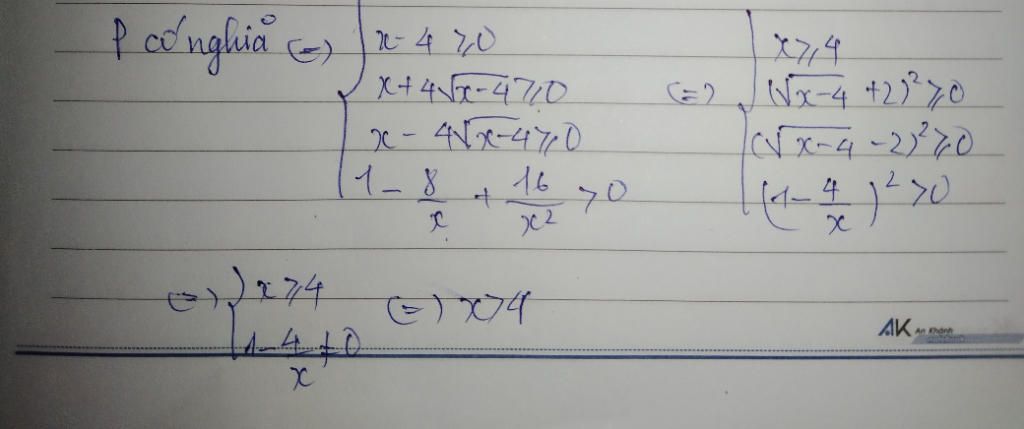 P có nghĩa (=) { x - 4 ⩾ 0
x + 4√x-4 ⩾ 0
x - 4√x-4 ⩾ 0
1 - 8/x + 16/x² > 0
(=) { x ⩾ 4
(√x-4 + 2)² ⩾ 0
(√x-4 - 2)² ⩾ 0
(1 - 4/x)² > 0
(=) { x ⩾ 4
1 - 4/x ≠ 0
(=) x > 4
AK An Khánh